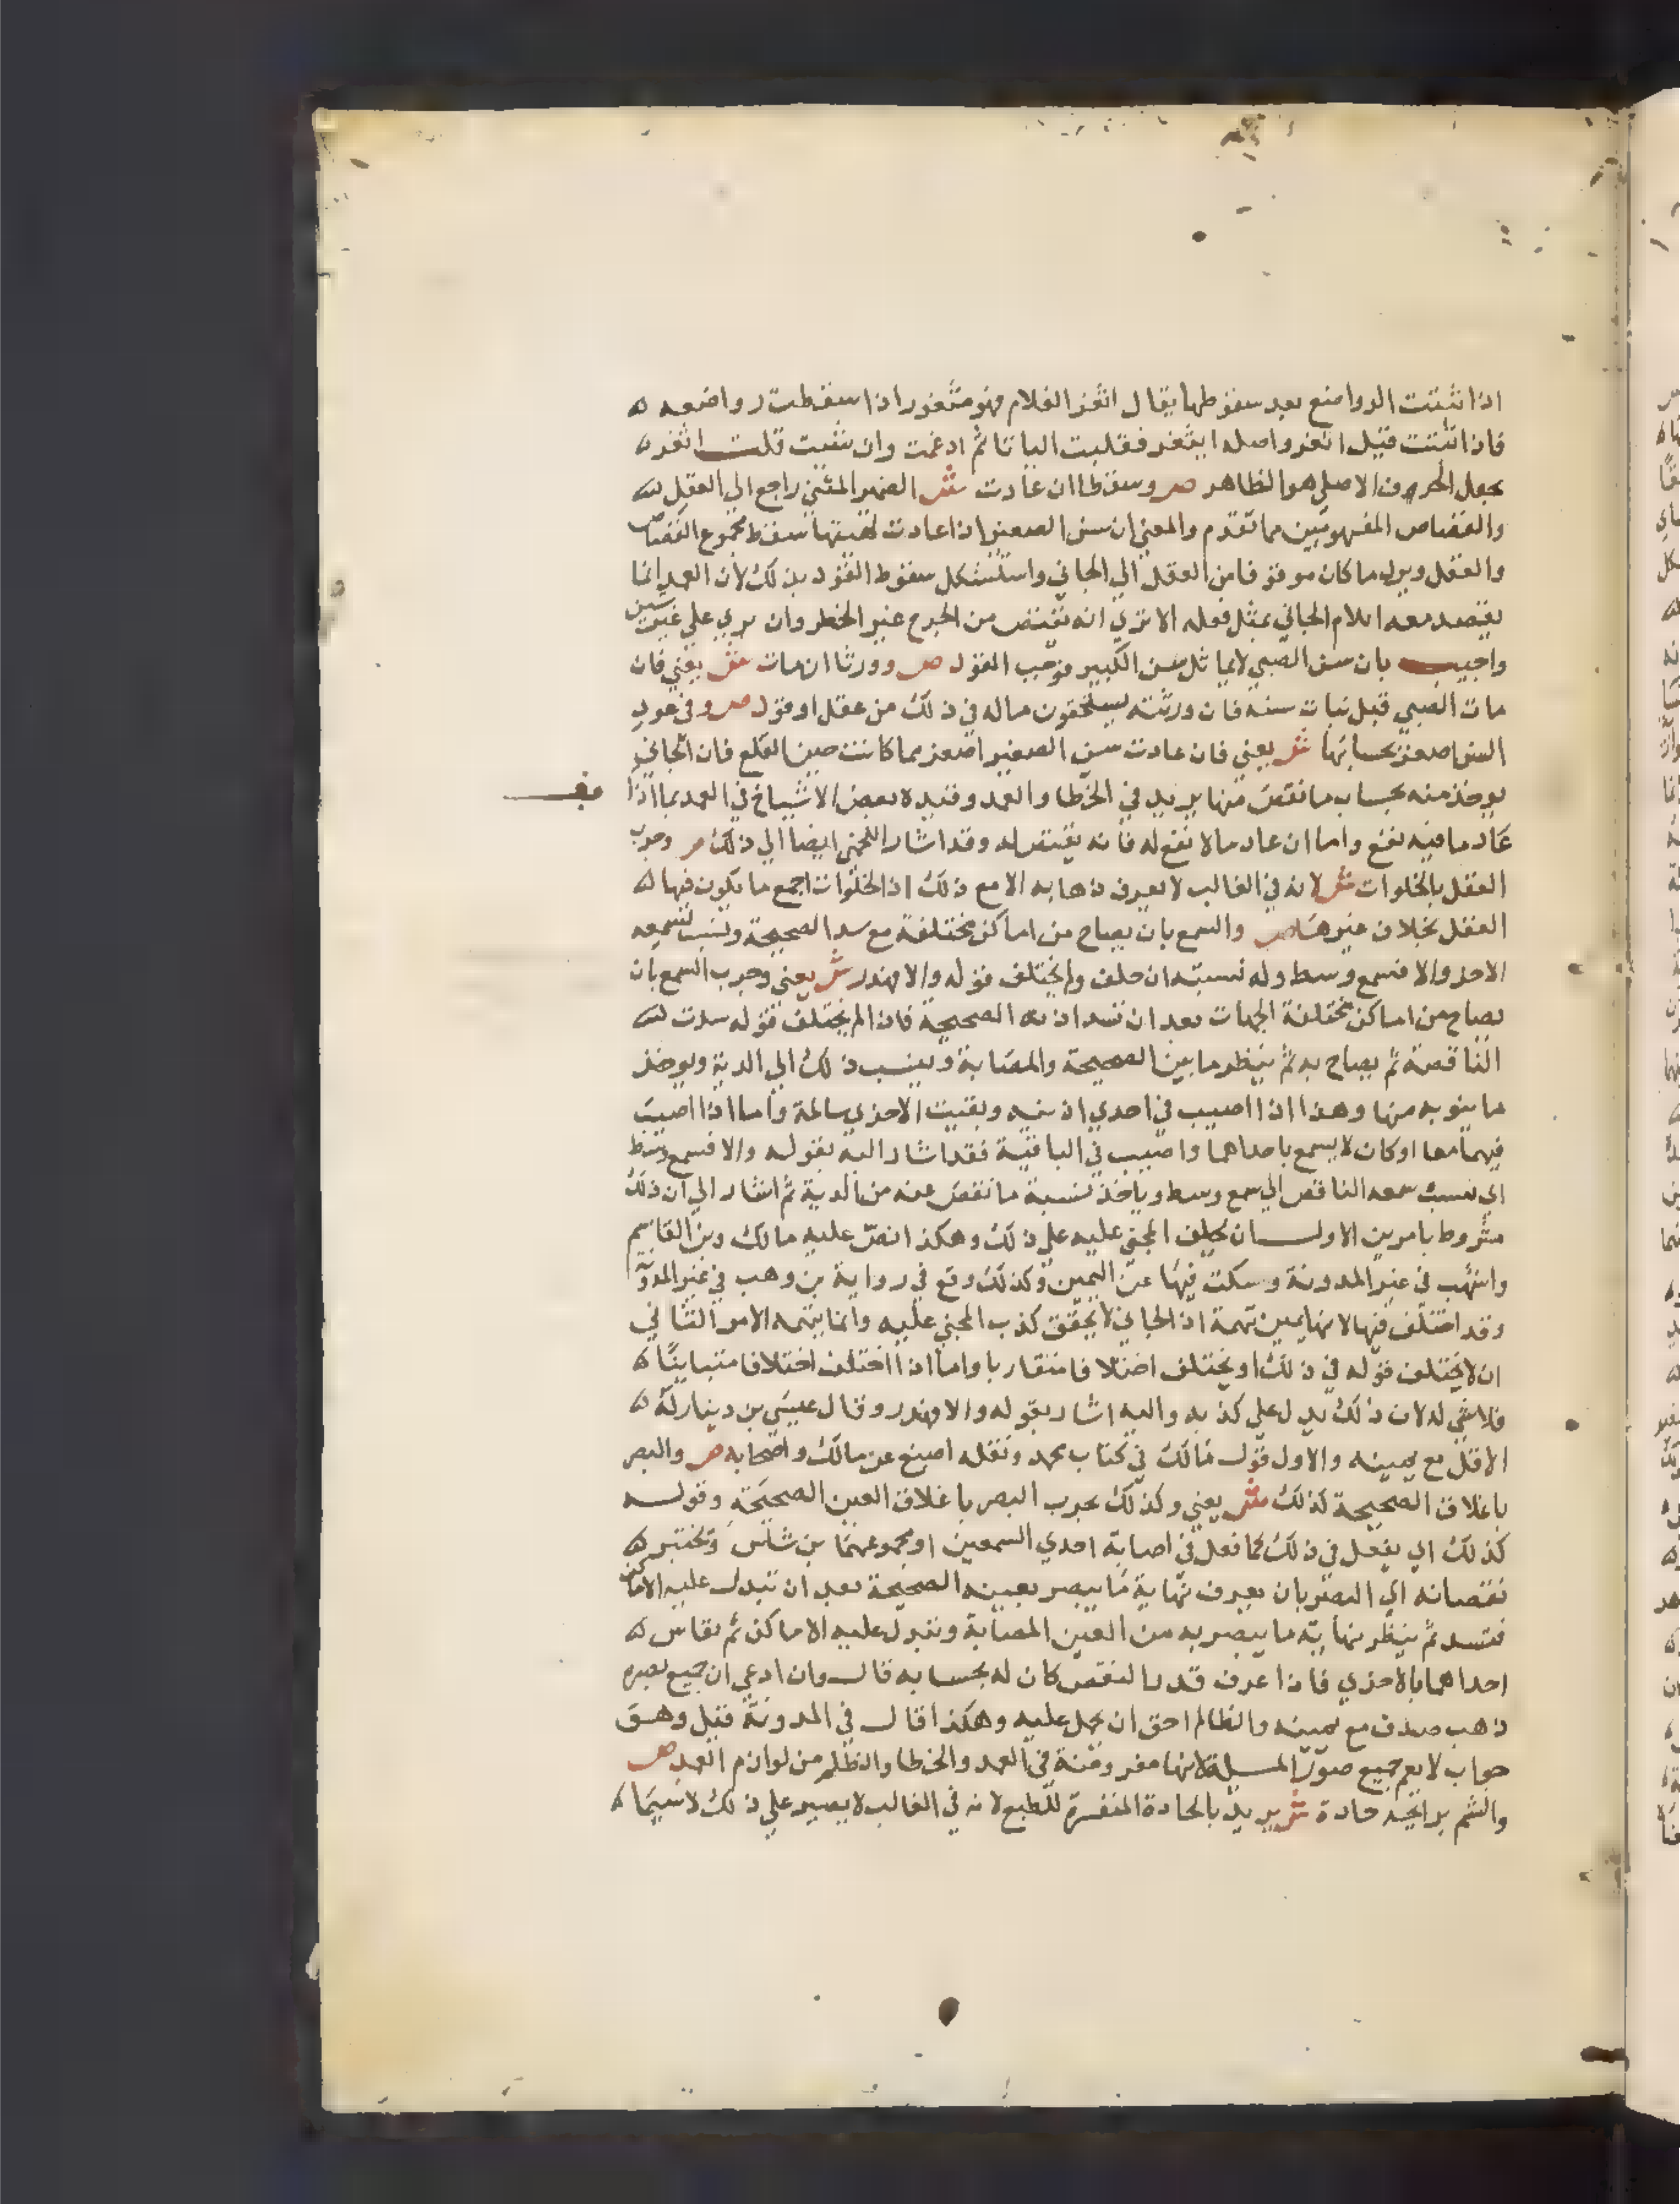 اذا نبتت الرواضع بعد سقوطها يقال اثغر الغلام فهو مثغور اذا سقطت رواضعه
فاذا انبتت قيل اتغر واصله ايثغر فقلبت اليا تا ثم ادغمت وان شيت قلت اثغر
بجعل الحرف الاصلي هو الظاهر صـ وسقطا ان عادت شـ الضمير المثني راجع الي العقل
والقصاص المفهومين مما تقدم والمعني ان سن الصغير اذا عادت لهيتها سقط مجموع القصاص
والعقل ويرد ما كان موقوفا من العقل الي الجاني واستشكل سقوط القود بذلك لان العمد انما
يقصد معه ايلام الجاني بمثل فعله الا تري انه يقتص من الجرح غير الخطر وان بري علي غير شين
واجيب بان سن الصبي لا يماثل سن الكبير فوجب القود صـ وورثا ان مات شـ يعني فان
مات الصبي قبل نبات سنه فان ورثته يستحقون ماله في ذلك من عقل او قود صـ وفي عود
السن اصغر بحسابها شـ يعني فان عادت سن الصغير اصغر مما كانت حين القلع فان الجاني
يوخذ منه بحساب ما نقص منها يريد في الخطا والعمد وقيده بعض الاشياخ في العمد بما اذا
عاد ما فيه نفع واما ان عاد ما لا نفع له فانه يقتص له وقد اشار اللخمي ايضا الي ذلك صـ وجرب
العقل بالخلوات شـ لانه في الغالب لا يعرف ذهابه الا مع ذلك اذ الخلوات اجمع ما يكون فيها
العقل بخلاف غيرها صـ والسمع بان يصاح من اماكن مختلفة مع سد الصحيحة ونسب لسمعه
الاخر والا فسمع وسط وله نسبته ان حلف ولم يختلف قوله والا فهدر شـ يعني وجرب السمع بان
يصاح من اماكن مختلفة الجهات بعد ان تسد اذنه الصحيحة فان لم يختلف قوله سدت
الناقصة ثم يصاح به ثم ينظر ما بين الصحيحة والمصابة وينسب ذلك الي الدية ويوخذ
ما ينوبه منها وهذا اذا اصيب في احدي اذنيه وبقيت الاخري سالمة واما اذا اصيب
فيهما معا او كان لا يسمع باحداهما واصيب في الباقية فقد اشار اليه بقوله والا فسمع وسط
اي نسب سمعه الناقص الي سمع وسط وياخذ بنسبة ما نقص عنه من الدية ثم اشار الي ان ذلك
مشروط بامرين الاول ان يحلف المجني عليه علي ذلك وهكذا نص عليه مالك وبن القاسم
واشهب في غير المدونة وسكت فيها عن اليمين وكذلك وقع في رواية بن وهب في غير المدونة
وقد اختلف فيها لانها يمين تهمة اذ الجاني لا يحقق كذب المجني عليه وانما يتهمه الامر الثاني
ان لا يختلف قوله في ذلك او يختلف اختلافا متقاربا واما اذا اختلف اختلافا متباينا
فلا شي له لان ذلك يدل علي كذبه واليه اشار بقوله والا فهدر وقال عيسي بن دينار له
الاقل مع يمينه والاول قول مالك في كتاب محمد ونقله اصبغ عن مالك واصحابه صـ والبصر
باغلاق الصحيحة كذلك شـ يعني وكذلك يجرب البصر باغلاق العين الصحيحة وقوله
كذلك اي يفعل في ذلك كما فعل في اصابة احدي السمعين او مجموعهما بن شاس ويختبر
نقصانه اي البصر بان يعرف نهاية ما يبصر بعينه الصحيحة بعد ان تبدل عليه الاماكن
فتسد ثم ينظر نهاية ما يبصر به من العين المصابة وتبدل عليه الاماكن ثم تقاس
احداهما بالاخري فاذا عرف قدر النقص كان له بحسابه قال وان ادعي ان جميع بصره
ذهب صدق مع يمينه والظالم احق ان يحمل عليه وهكذا قال في المدونة قيل وهو
جواب لا يعم جميع صور المسيلة لانها مفروضة في العمد والخطا والظلم من لوازم العمد صـ
والشم برايحة حادة شـ يريد بالحادة المنفرة للطبع لانه في الغالب لا يصبر علي ذلك لا سيما